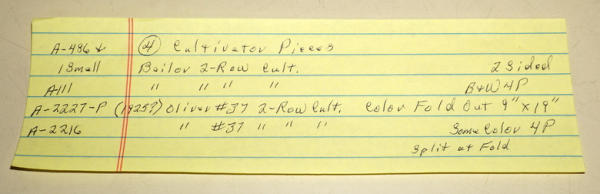 A-486 ↓ (4) Cultivator Pieces
1 Small Bailor 2-Row Cult. 2 Sided
A111 " " " " B+W 4P
A-2227-P (19257) Oliver #37 2-Row Cult. Color Fold Out 9" x 19"
A-2216 " #37 " " " Some Color 4P
Split at Fold